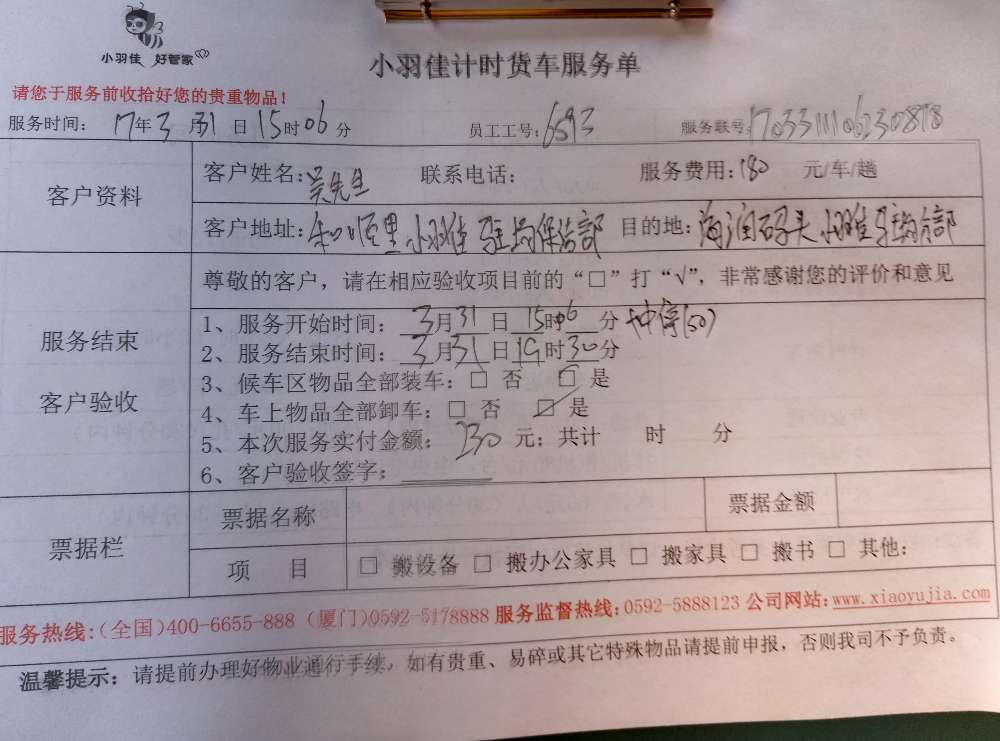 小羽佳 好管家
小羽佳计时货车服务单
请您于服务前收拾好您的贵重物品！
服务时间： 17年3月31日15时06分 员工工号：6593 服务联号：
客户资料
客户姓名：吴先生 联系电话： 服务费用：180 元/车/趟
客户地址：和顺里小羽佳驻场保洁部 目的地：海润码头小羽佳驻场部
尊敬的客户，请在相应验收项目前的“□”打“√”，非常感谢您的评价和意见
服务结束
客户验收
1、服务开始时间： 3月31日15时06分 (50)
2、服务结束时间： 3月31日19时30分
3、候车区物品全部装车：□ 否 □ 是
4、车上物品全部卸车：□ 否 ☑ 是
5、本次服务实付金额： 230 元；共计 时 分
6、客户验收签字：
票据栏
票据名称 票据金额
项 目 □ 搬设备 □ 搬办公家具 □ 搬家具 □ 搬书 □ 其他：
服务热线：(全国)400-6655-888 (厦门)0592-5178888 服务监督热线：0592-5888123 公司网站：www.xiaoyujia.com
温馨提示：请提前办理好物业通行手续，如有贵重、易碎或其它特殊物品请提前申报，否则我司不予负责。